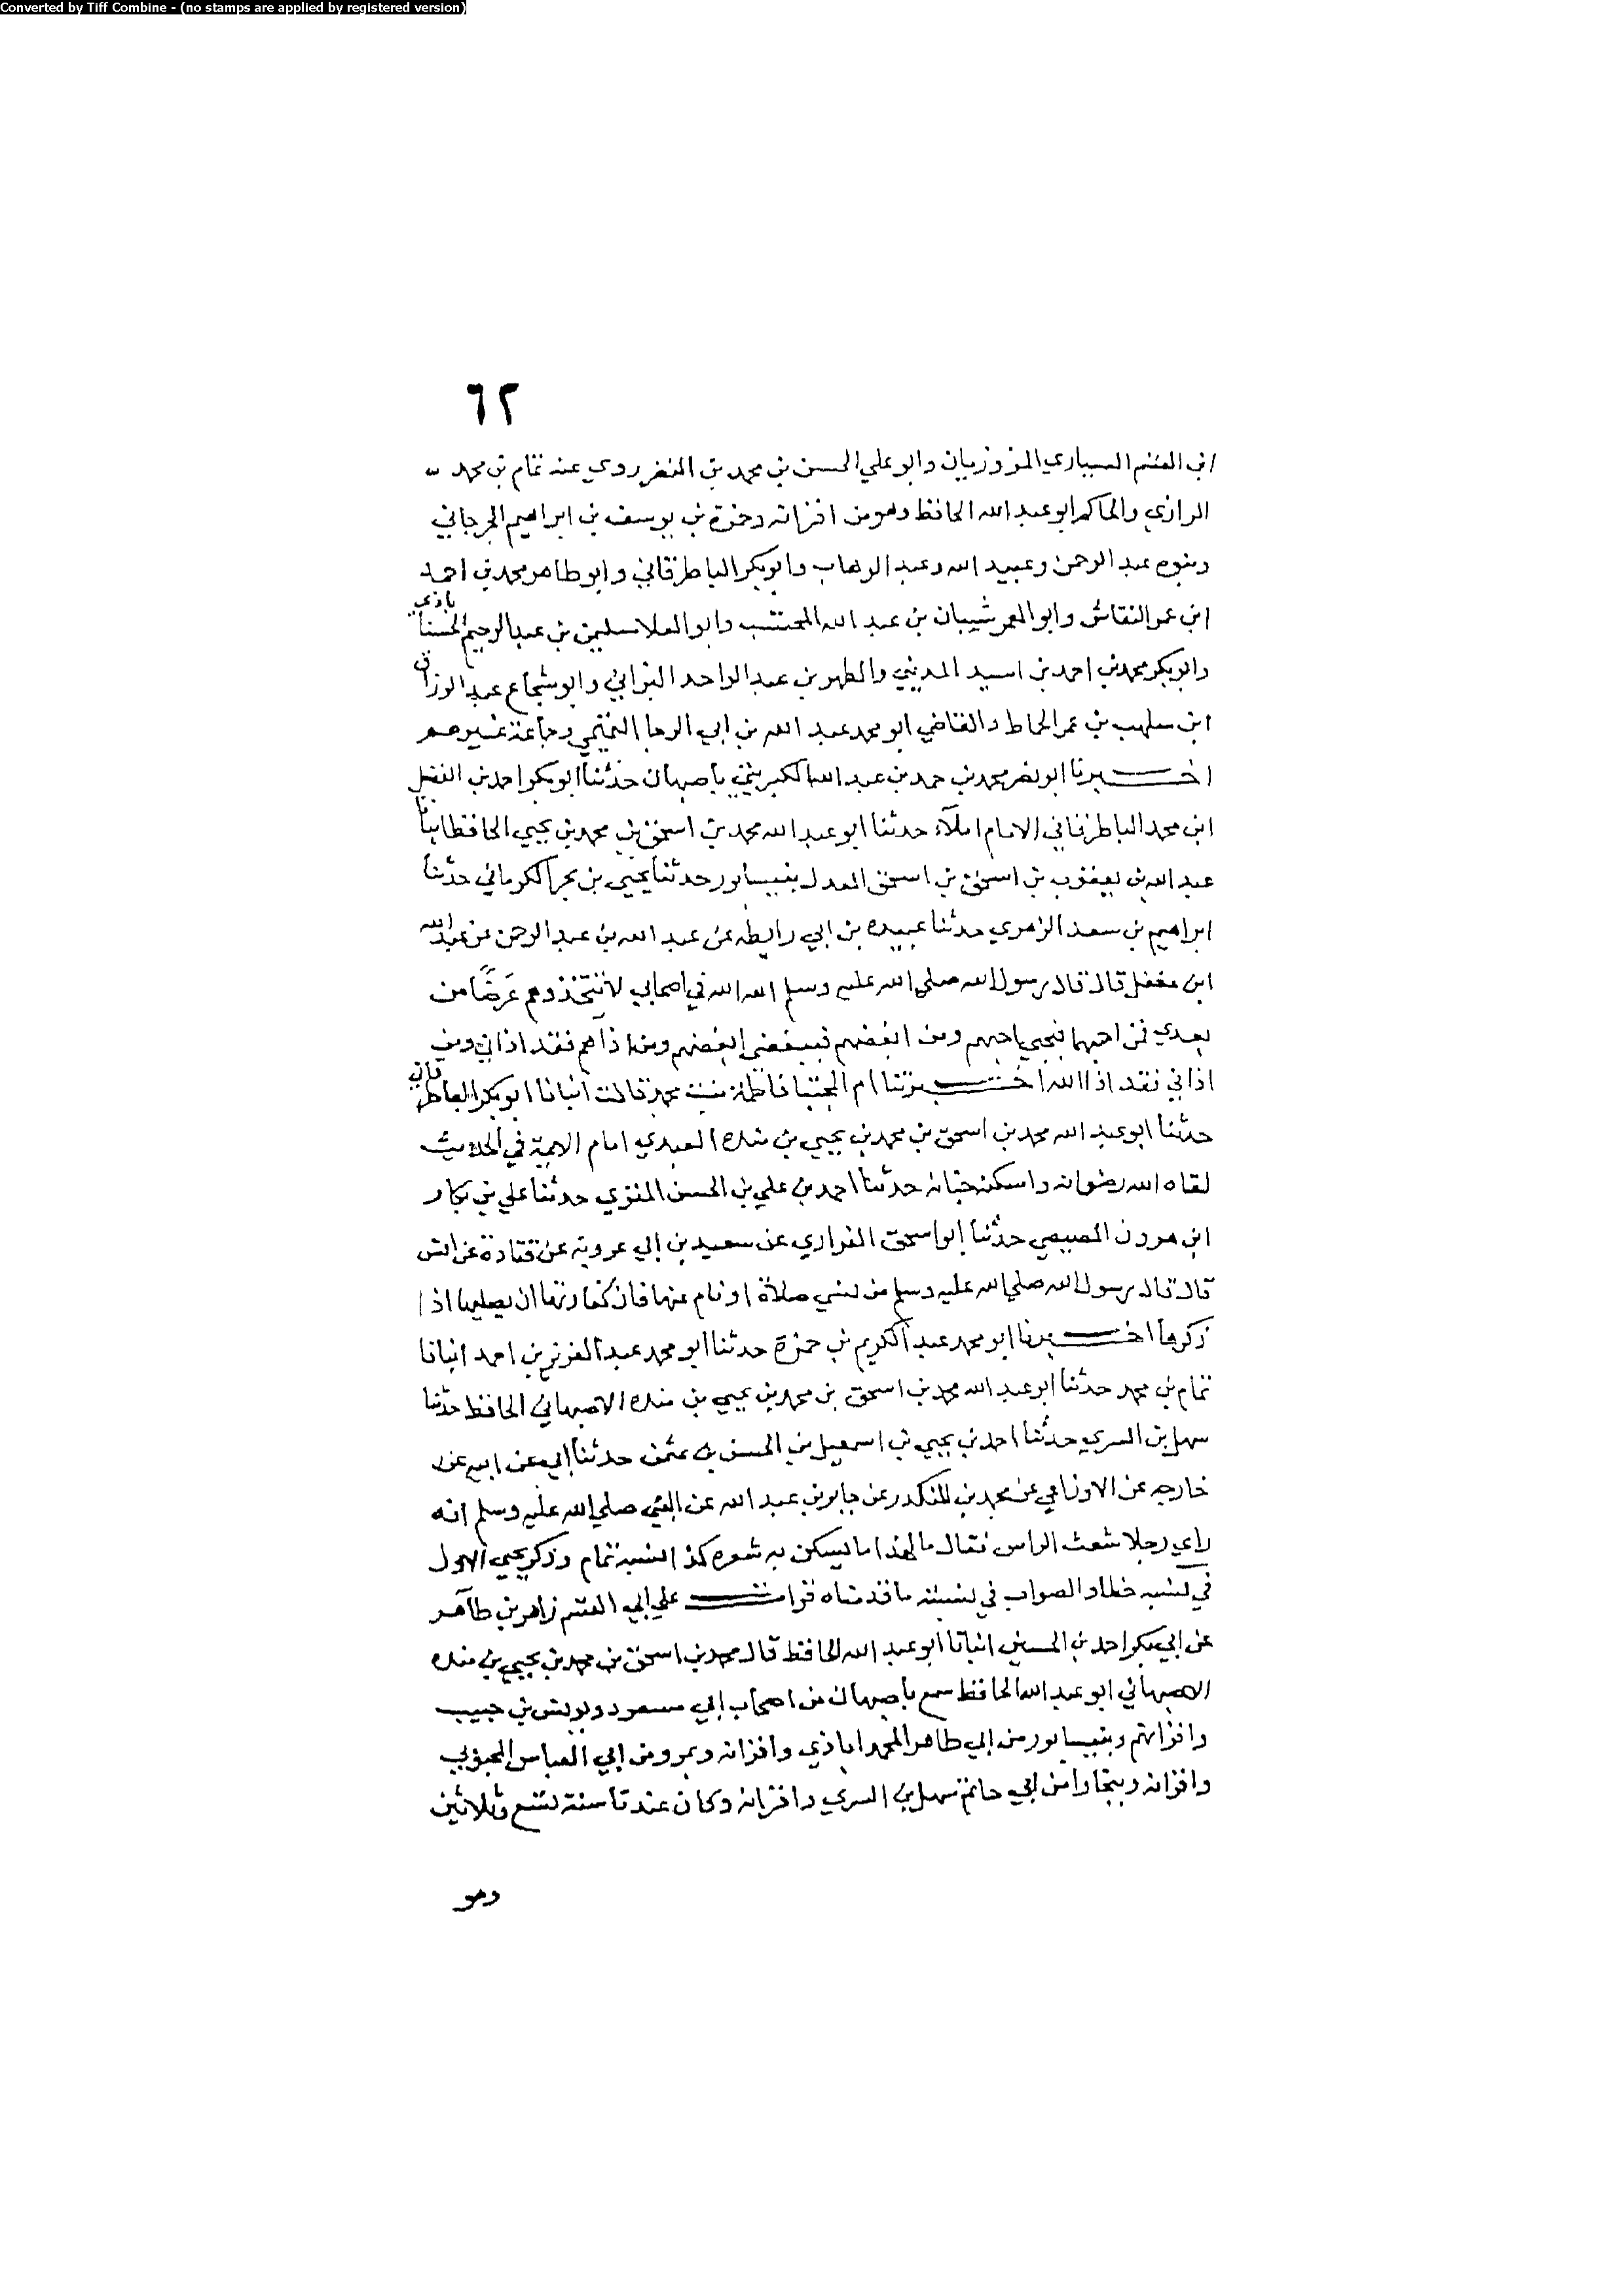 Converted by Tiff Combine - (no stamps are applied by registered version)
٦٢
ابن القسم السياري المروزيان وابو علي الحسن بن محمد بن النضر روي عنه تمام بن محمد
الرازي والحاكم ابو عبد الله الحافظ وهو من اقرانه وحمزة بن يوسف بن ابراهيم الجرجاني
وبنوه عبد الرحمن وعبيد الله وعبد الوهاب وابو بكر الباطرقاني وابو طاهر محمد بن احمد
ابن عمر النقاش وابو العمر شيبان بن عبد الله المحتسب وابو العلا سليمن بن عبد الرحيم الحسناباذي
وابو بكر محمد بن احمد بن اسيد المديني والمطهر بن عبد الواحد البزاني وابو شجاع عبد الرزاق
ابن سلهب بن عمر الحاط والقاضي ابو محمد عبد الله بن ابي الرجا التميمي وجماعة غيرهم
اخبرنا ابو نصر محمد بن حمد بن عبد الله الكبريتي باصبهان حدثنا ابو بكر احمد بن الفضل
ابن محمد الباطرقاني الامام املآء حدثنا ابو عبد الله محمد بن اسحق بن محمد بن يحيي الحافظ انبأ
عبد الله بن يعقوب بن اسحق بن اسحق المعدل بنيسابور حدثنا يحيي بن بحر الكرماني حدثنا
ابراهيم بن سعد الزهري حدثنا عبيده بن ابي رايطه عن عبد الله بن عبد الرحمن عن عبد الله
ابن مغفل قال قال رسول الله صلي الله عليه وسلم الله الله في اصحابي لا تتخذوهم غرضًا من
بعدي فمن احبهم فبحبي احبهم ومن ابغضهم فببغضي ابغضهم ومن اذاهم فقد اذاني ومن
اذاني فقد اذا الله اخبرتنا ام المجتبا فاطمة بنت محمد قالت انبانا ابو بكر الباطرقاني
حدثنا ابو عبد الله محمد بن اسحق بن محمد بن يحيي بن منده العبدي امام الايمة في الحديث
لقاه الله رضوانه واسكنه جنانه حدثنا احمد بن علي بن الحسن المقري حدثنا علي بن بكار
ابن هرون المصيصي حدثنا ابو اسحق الفزاري عن سعيد بن ابي عروبة عن قتادة عن انس
قال قال رسول الله صلي الله عليه وسلم من نسي صلاة او نام عنها فان كفارتها ان يصليها اذا
ذكرها اخبرنا ابو محمد عبد الكريم بن حمزة حدثنا ابو محمد عبد العزيز بن احمد انبانا
تمام بن محمد حدثنا ابو عبد الله محمد بن اسحق بن محمد بن يحيي بن منده الاصبهاني الحافظ حدثنا
سهل بن السري حدثنا احمد بن يحيي بن اسمعيل بن الحسن بن عثمن حدثنا ابي عن ابيه عن
خارجه عن الاوزاعي عن محمد بن المنكدر عن جابر بن عبد الله عن النبي صلي الله عليه وسلم انه
راي رجلا شعث الراس فقال ما لهذا ما يسكن به شعره كذا نسبه تمام وذكر يحيي الاول
في نسبه خطا والصواب في نسبته ما قدمناه قرات علي ابي القسم زاهر بن طاهر
عن ابي بكر احمد بن الحسين انبانا ابو عبد الله الحافظ قال محمد بن اسحق بن محمد بن يحيي بن منده
الاصبهاني ابو عبد الله الحافظ سمع باصبهان من اصحاب ابي مسعود ويونس بن حبيب
واقرانهم وبنيسابور من ابي طاهر المحمداباذي واقرانه وبمرو من ابي العباس المحبوبي
واقرانه وببخارا من ابي حاتم سهل بن السري واقرانه وكان عندنا سنة تسع وثلاثين
وهو